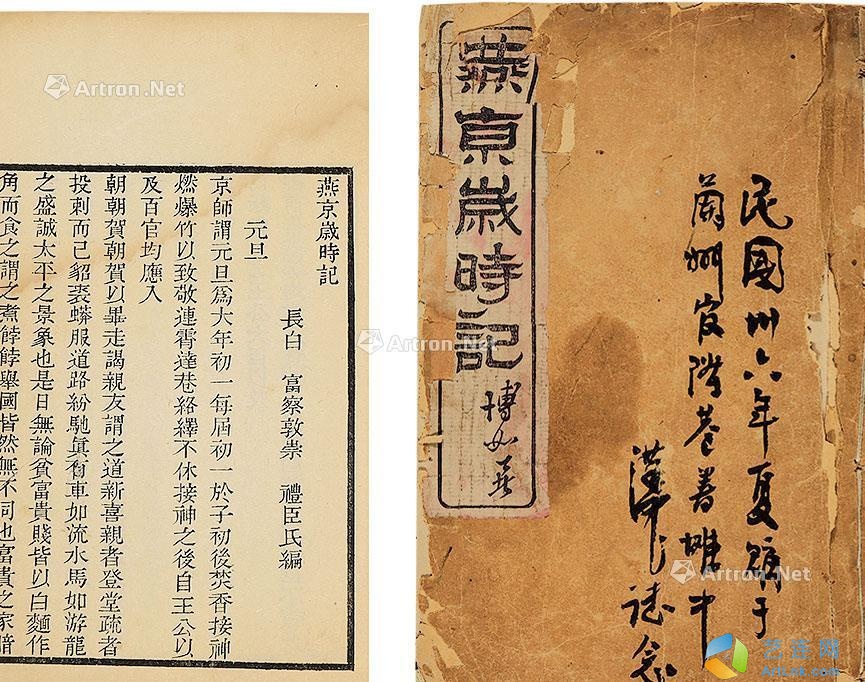 燕京歲時記
長白 富察敦崇 禮臣氏編
元旦
京師謂元旦爲大年初一每屆初一於子初後焚香接神
燃爆竹以致敬連霄達巷絡繹不休接神之後自王公以
及百官均應入
朝朝賀朝賀以畢走謁親友謂之道新喜親者登堂疏者
投刺而已貂裘蟒服道路紛馳眞有車如流水馬如游龍
之盛誠太平之景象也是日無論貧富貴賤皆以白麵作
角而食之謂之煮餑餑舉國皆然無不同也富貴之家暗
燕京歲時記
民國卅六年夏購于
蘭州官階巷書攤中
誌念
Artron.Net
Artron.Net
Artron.Net
Artron.Net
艺连网